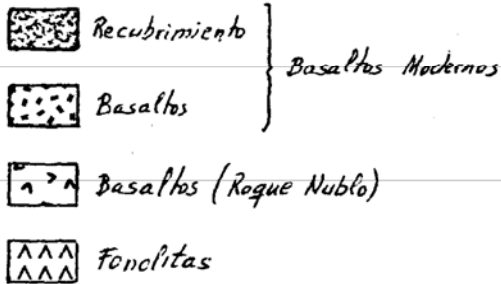 Recubrimiento
Basaltos Modernos
Basaltos
Basaltos (Roque Nublo)
Fonolitas